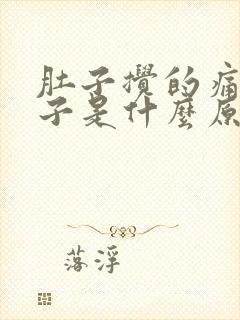 肚子攪的痛
子是什麼原
落浮